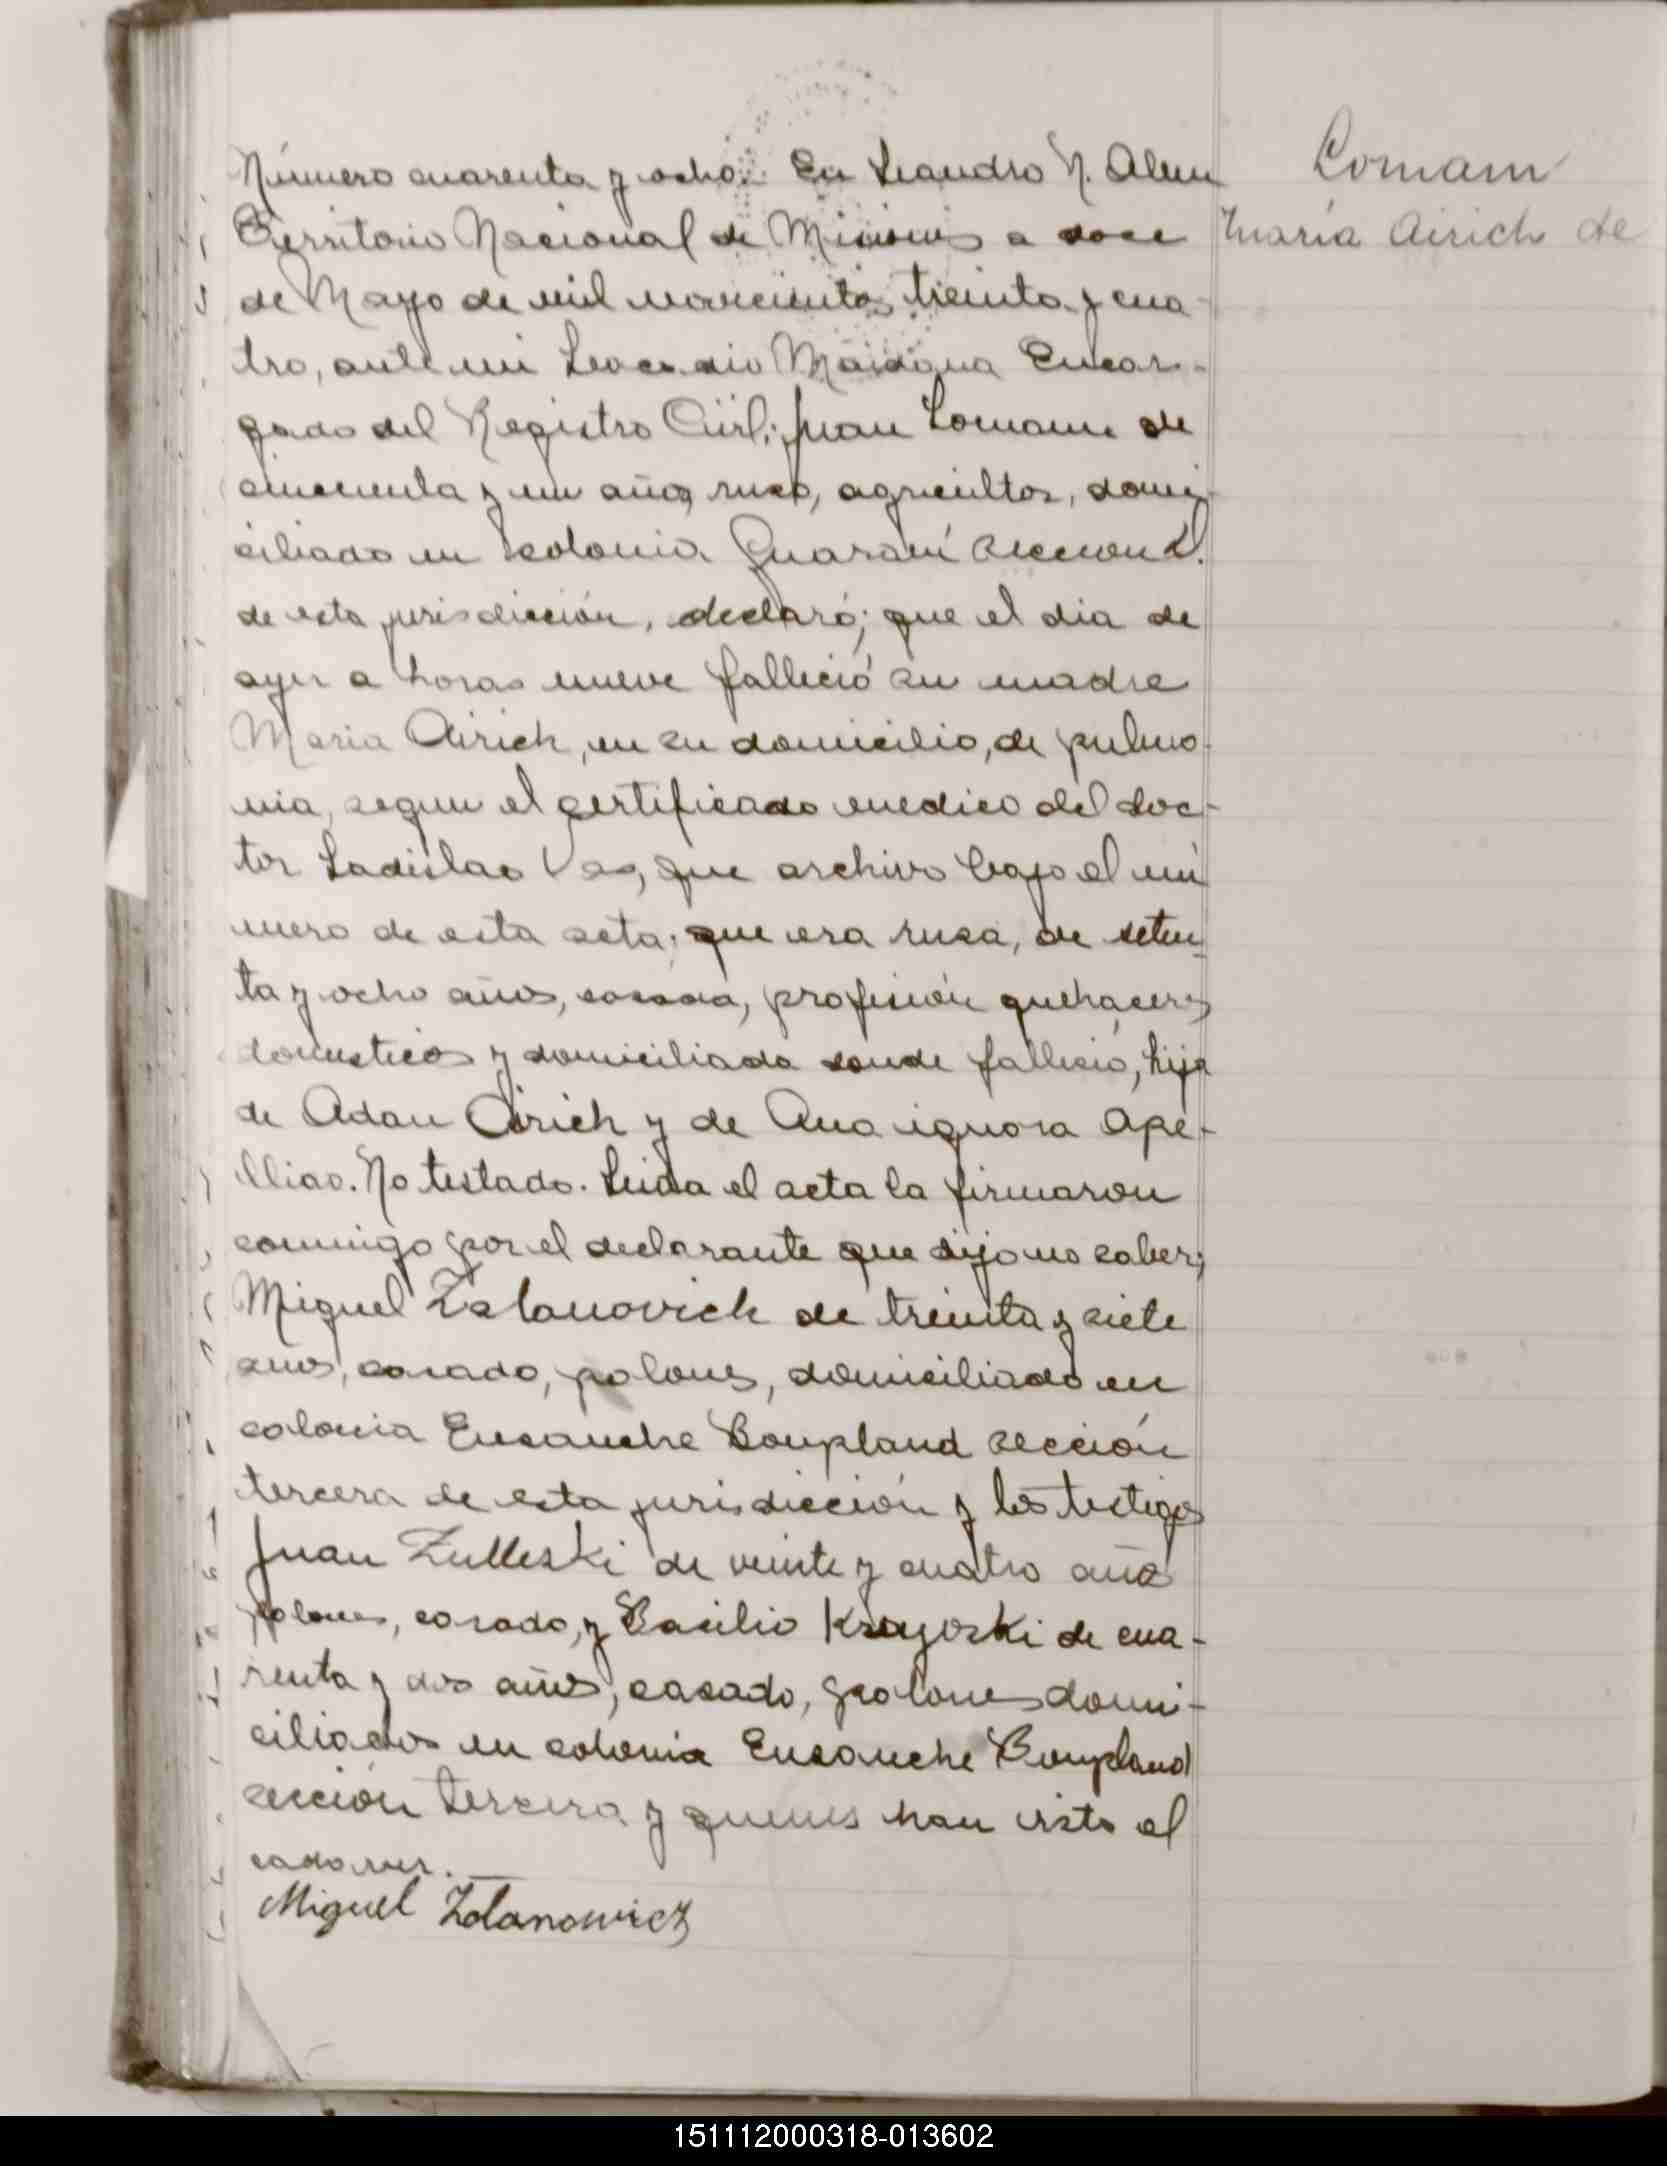 Número cuarenta y ocho. En Leandro N. Alem
Territorio Nacional de Misiones a doce
de Mayo de mil novecientos treinta y cua-
tro, ante mi Leocadio Maidana Encar-
gado del Registro Civil; Juan Lomann de
cincuenta y un años, ruso, agricultor, domi-
ciliado en colonia Guaraní seccion 2.
de esta jurisdicción, declaró; que el dia de
ayer a horas nueve falleció su madre
Maria Airich, en su domicilio, de pulmo-
nia, segun el certificado medico del doc-
tor Ladislao que archivo bajo el nú
mero de esta acta; que era rusa, de seten
ta y ocho años, casada, profesión quehaceres
domesticos y domiciliada donde falleció, hija
de Adan Airich y de Ana ignora ape-
llido. No testado. Leida el acta la firmaron
conmigo por el declarante que dijo no saber;
Miguel Zolanovich de treinta y siete
años, casado, polones, domiciliado en
colonia Ensanche Bonpland sección
tercera de esta jurisdicción y los testigos
Juan Zulleski de veinte y cuatro años
polones, casado, y Basilio Krayoski de cua-
renta y dos años, casado, polones domi-
ciliados en colonia Ensanche Bonpland
sección tercera y quienes han visto el
cadaver.
Miguel Zolanowicz
Lomam
María Airich de
151112000318-013602